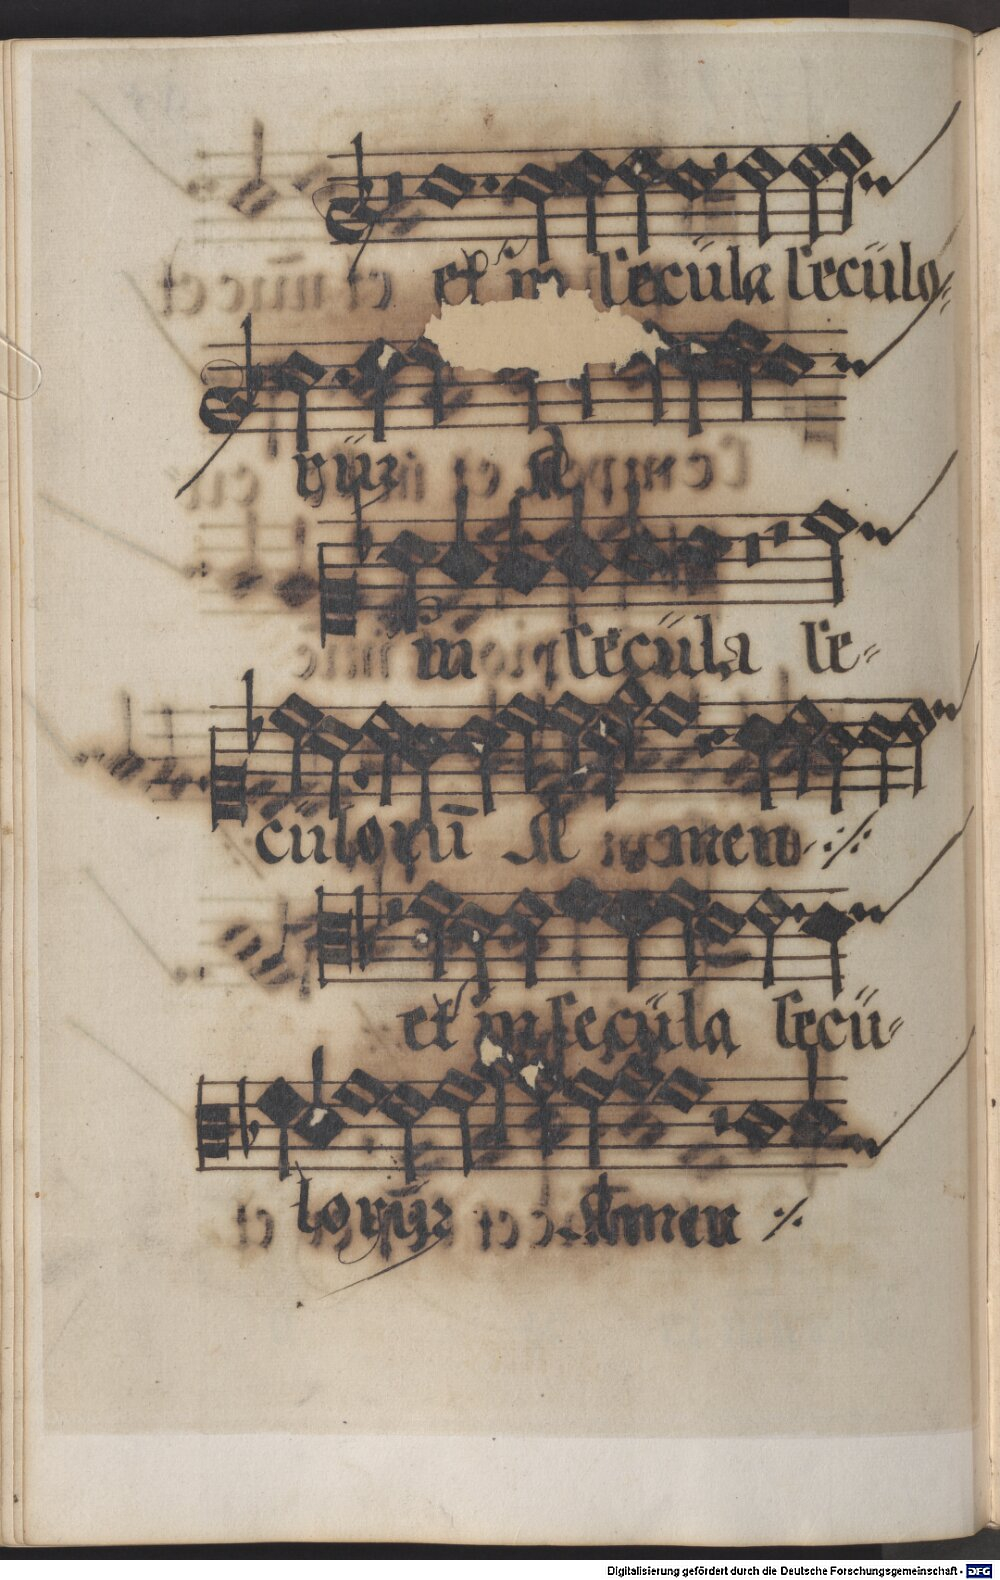 et in secüla secülo-
rüm A
in secüla se-
cülorū A men
et in secüla secü-
lorüm Amen
Digitalisierung gefördert durch die Deutsche Forschungsgemeinschaft - DFG